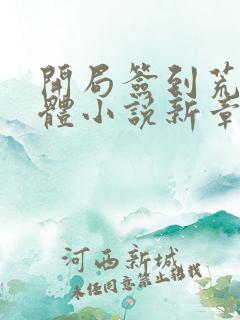 開局簽到荒
體小説新章
河西新城
未经同意禁止转载